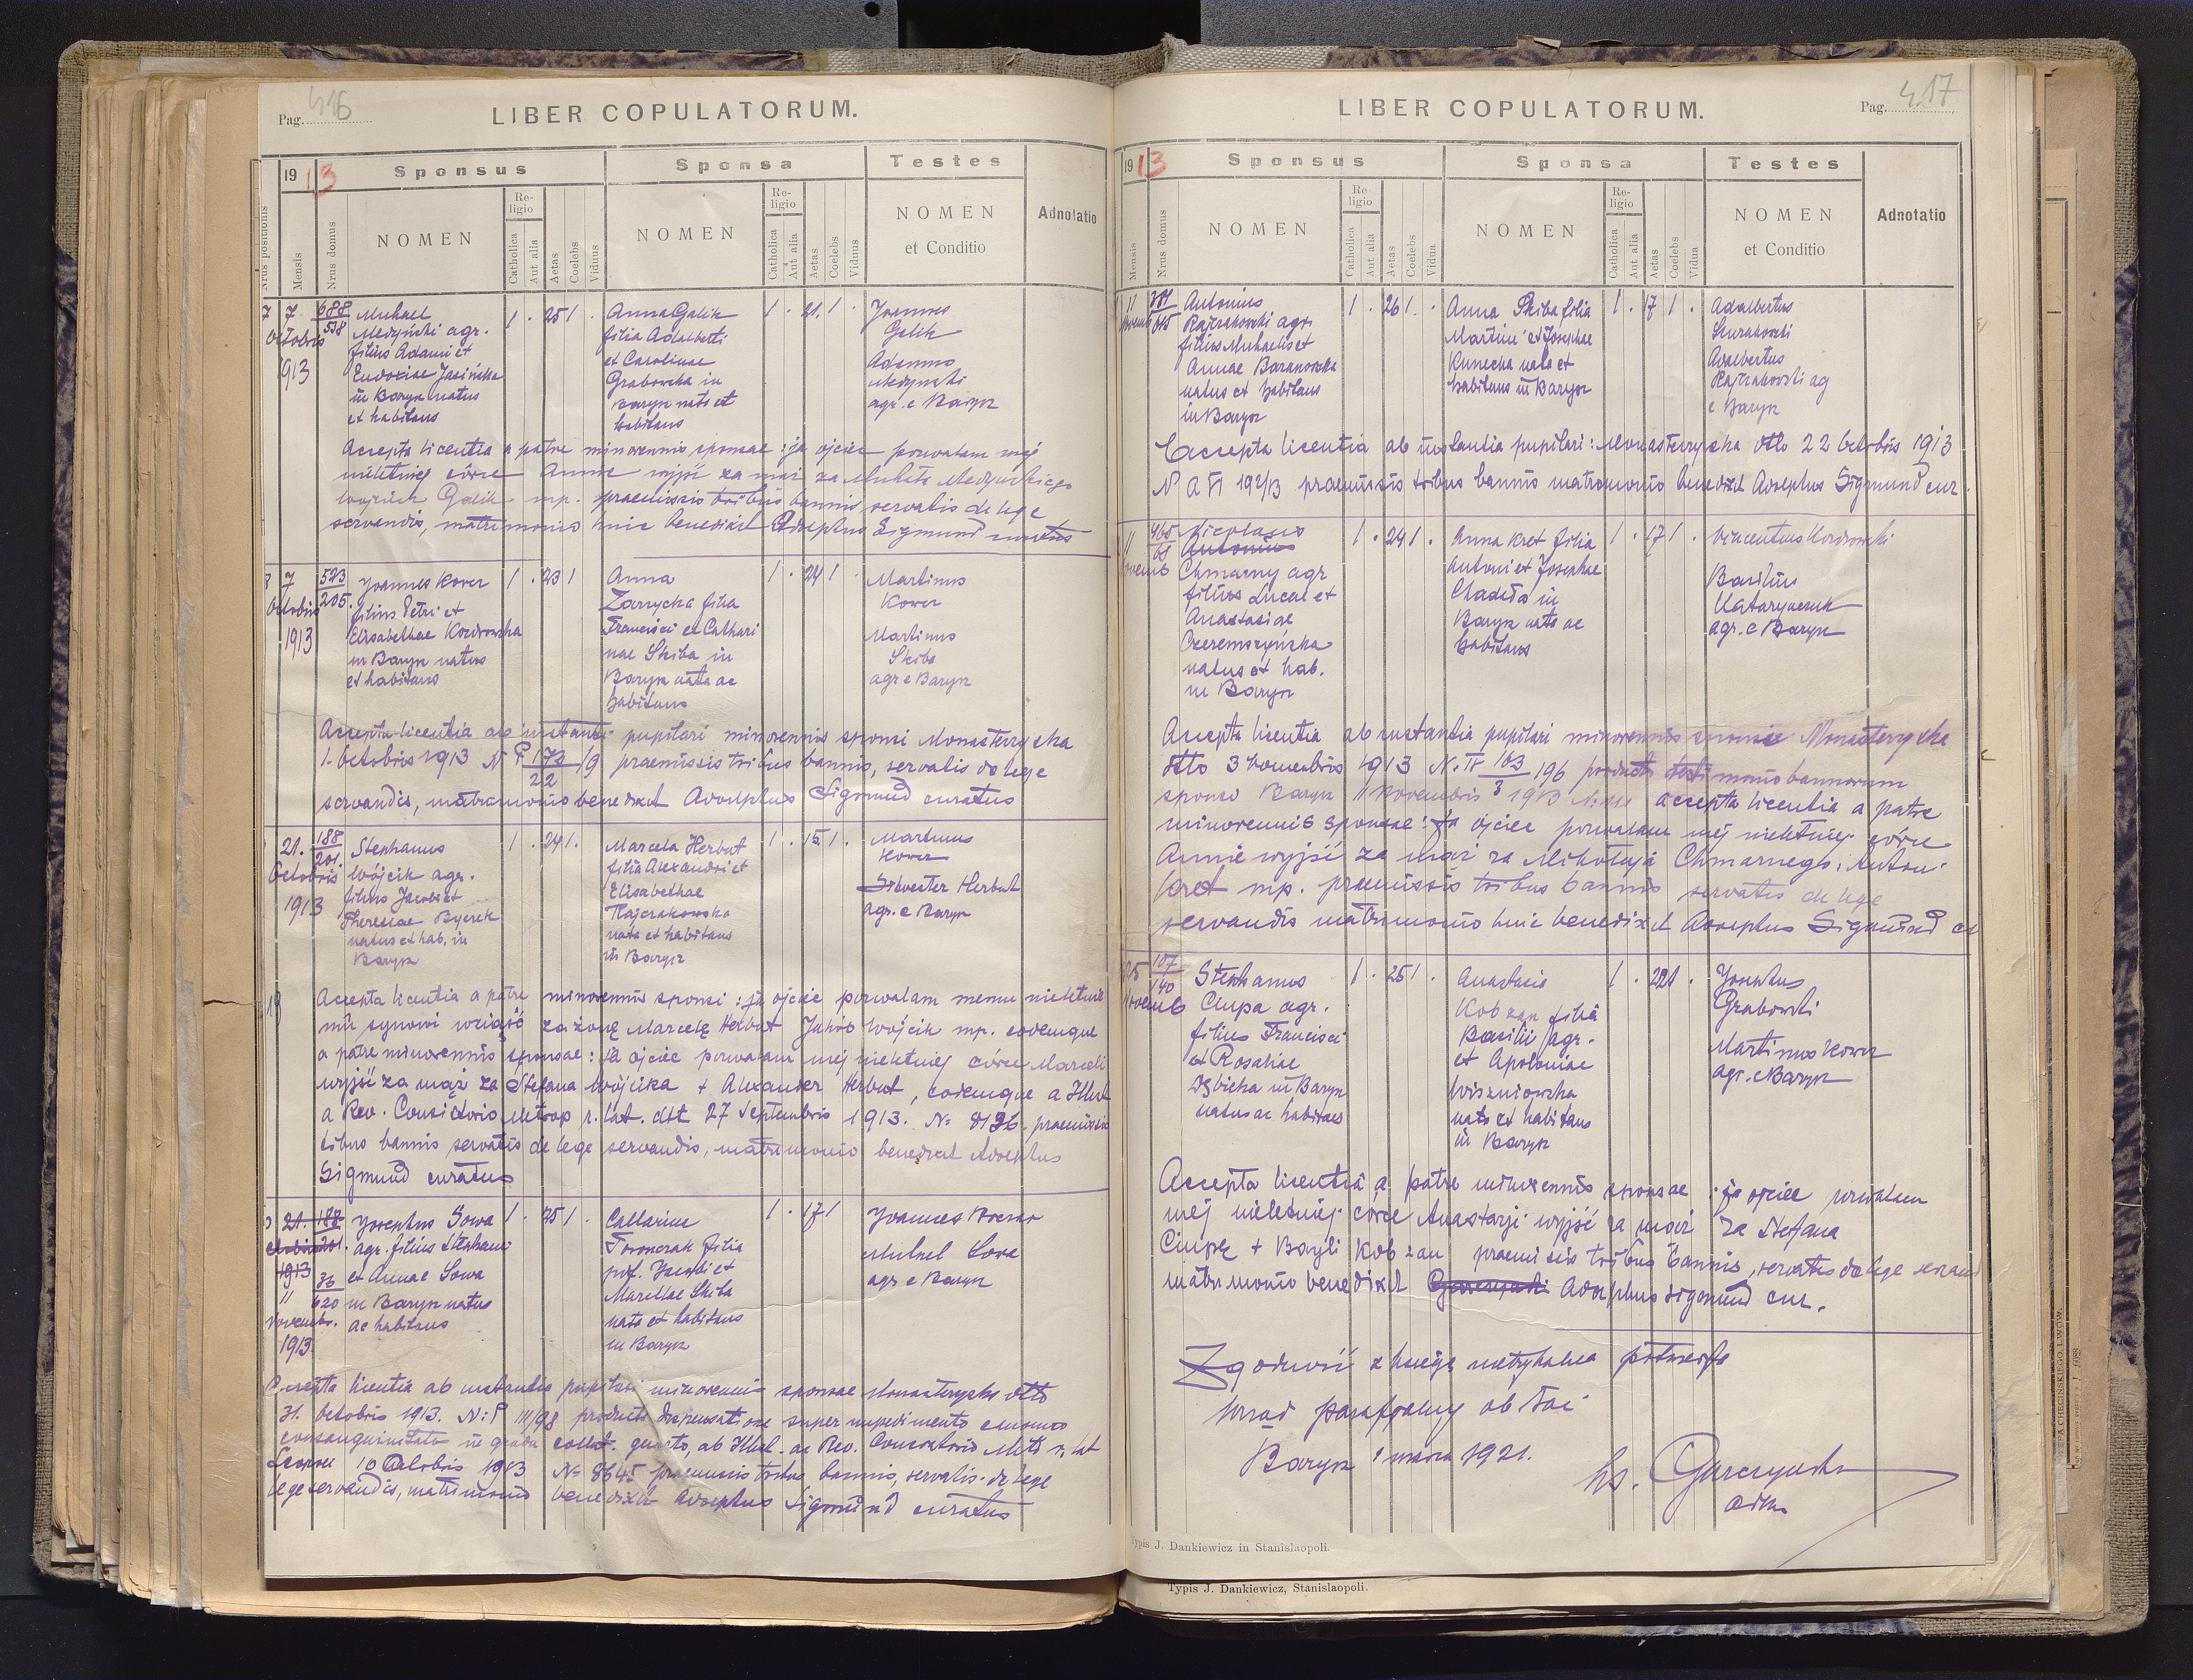 Pag. 416
LIBER COPULATORUM.
1913
Sponsus
Sponsa
Testes
Nrus positionis
Mensis
Nrus domus
NOMEN
Religio
Catholica
Aut alia
Aetas
Coelebs
Viduus
NOMEN
Religio
Catholica
Aut alia
Aetas
Coelebs
Viduus
NOMEN
et Conditio
Adnotatio
7
Octobris
1913
688
538
Michael
Medyński agr.
filius Adami et
Eudoxiae Jasińska
in Barysz natus
et habitans
1 . 25 1 .
Anna Galik
filia Adalberti
et Carolinae
Grabowska in
Barysz nata et
habitans
1 . 21. 1 .
Joannes
Galik
Adamus
Medynski
agr. e Barysz
Accepta licentia a patre minorennis sponsae : ja ojciec pozwalam mej
nieletniej córce Annie wyjść za mąż za Michała Medyńskiego
Wojciech Galik mp. praemissis tribus bannis servatis de lege
servandis, matrimonio huic benedixit Adolphus Sigmund curatus
7
Octobris
1913
523
205.
Joannes Kower
filius Petri et
Elisabethae Kordowska
in Barysz natus
et habitans
1 . 23 1
Anna
Zarzycka filia
Francisci et Cathari
nae Skiba in
Barysz nata ac
habitans
1 . 24 1 .
Martinus
Kower
Martinus
Skiba
agr e Barysz
Accepta licentia ab instantia pupilari minorennis sponsi Monasterzyska
1. Octobris 1913 N P 173/22 /9 praemissis tribus bannis, servatis de lege
servandis, matrimonio benedixit Adolphus Sigmund curatus
21.
Octobris
1913
188
201.
Stephanus
Wójcik agr.
filius Jacobi et
Theresiae Bycek
natus et hab. in
Barysz
1 . 24 1 .
Marcela Herbut
filia Alexandri et
Elisabethae
Rajczakowska
nata et habitans
in Barysz
1 . 15. 1 .
Martinus
Kower
Silvester Herbut
agr. e Barysz
Accepta licentia a patre minorennis sponsi : ja ojciec pozwalam memu nieletnie
mu synowi wziąść za żonę Marcelę Herbut Jakób Wójcik mp. eademque
a patre minorennis sponsae : ja ojciec pozwalam mej nieletniej córce Marceli
wyjść za mąż za Stefana Wójcika + Alexander Herbut, eademque a Illust
a Rev. Consistorio Metrop r. lat. dtt 27 Septembris 1913. N= 8136. praemissis
tribus bannis servatis de lege servandis, matrimonio benedixit Adolphus
Sigmund curatus
21. 188
201.
1913
11
Novembr.
1913
36
620
Josephus Sowa
agr. filius Stephani
et Annae Sowa
in Barysz natus
ac habitans
1 . 25 1 .
Catharina
Toronczak filia
pdf. Jacobi et
Mariae Skiba
nata et habitans
in Barysz
1 . 17 1
Joannes
Michael Sowa
agr e Barysz
Accepta licentia ab instantia pupilari minorennis sponsae Monasterzyska dtto
31. Octobris 1913. N: P III/98 producta dispensatione super impedimento
consanguinitatis in gradu collat. quarto, ab Illust. ac Rev. Consistorio Metr r. lat
Leopoli 10 Octobris 1913 N= 8645 praemissis tribus bannis, servatis de lege
lege servandis, matrimonio benedixit Adolphus Sigmund curatus
LIBER COPULATORUM.
Pag. 417
1913
Sponsus
Sponsa
Testes
Mensis
Nrus domus
NOMEN
Religio
Catholica
Aut alia
Aetas
Coelebs
Vidua
NOMEN
Religio
Catholica
Aut alia
Aetas
Coelebs
Vidua
NOMEN
et Conditio
Adnotatio
11
Novemb
615
Antonius
Rajczakowski agr.
filius Michaelis et
Annae Baranowska
natus et habitans
in Barysz
1 . 26 1 . .
Anna Skiba filia
Martini et Josephae
Kunecka nata et
habitans in Barysz
1 . 17 1 .
Adalbertus
Skurakowski
Adalbertus
Rajczakowski ag
e Barysz
Accepta licentia ab instantia pupilari: Monasterzyska dtto 22 Octobris 1913
N P VI 192/13 praemissis tribus bannis matrimonio benedixit Adolphus Sigmund cur.
11
Novemb
465
61
Nicolaus
Antonius
Chmarny agr
filius Lucae et
Anastasiae
Czeremszyńska
natus et hab.
in Barysz
1 . 24 1 .
Anna Kret filia
Antoni et Josephae
Chadisz in
Barysz nata ac
habitans
1 . 17 1 .
Vincentius Kordowski
Basilius
Kataryniczuk
agr. e Barysz
Accepta licentia ab instantia pupilari minorennis sponsi Monasterzyska
dtto 3 Novembris 1913 N. IV 103/3 196 producto testimonio bannorum
sponso Barysz 11 Novembris 1913 accepta licentia a patre
minorennis sponsae : Ja ojciec pozwalam mej nieletniej córce
Annie wyjść za mąż za Mikołaja Chmarnego. Antoni
Kret mp. praemissis tribus bannis servatis de lege
servandis matrimonio huic benedixit Adolphus Sigmund cu
25
Novemb
107
140
Stephanus
Ciupa agr.
filius Francisci
et Rosaliae
Dębicka in Barysz
natus ac habitans
1 . 25 1 .
Anastasia
Kobzan filia
Basilii agr.
et Apoloniae
Wiszniowska
nata et habitans
in Barysz
1 . 22 1 .
Josephus
Grabowski
Martinus Kower
agr. e Barysz
Accepta licentia a patre minorennis sponsae : ja ojciec pozwalam
mej nieletniej córce Anastazji wyjść za mąż za Stefana
Ciupę + Bazyli Kobzan praemissis tribus bannis, servatis de lege servand
matrimonio benedixit Adolphus Sigmund cur.
Zgodność z księgą metrykalną potwierdza
Urząd parafialny ob łać
Barysz 1 marca 1921.
ks.
Typis J. Dankiewicz in Stanislaopoli.
Typis J. Dankiewicz, Stanislaopoli.